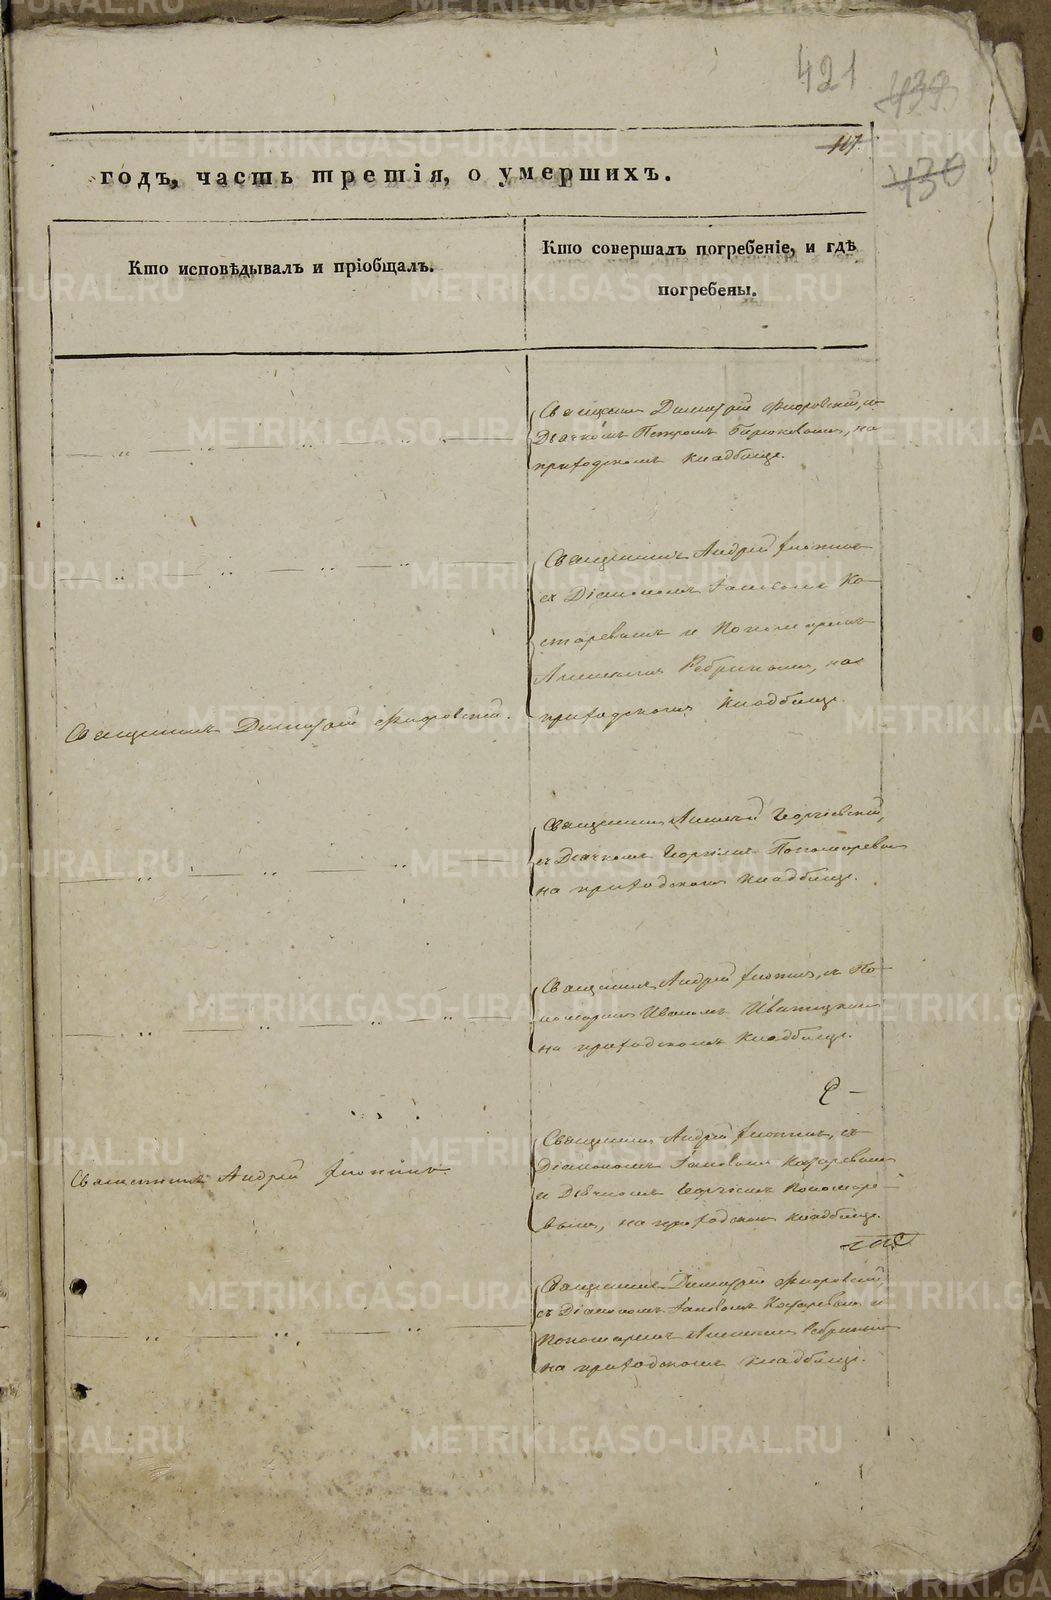 421
439
117.
430
годъ, часть третія, о умершихъ.
Кто исповѣдывалъ и пріобщалъ.
Кто совершалъ погребеніе, и гдѣ
погребены.
Священникъ Димитрій
Дьячкомъ Петромъ на
приходскомъ кладбище.
Священникъ Андрей
съ Діакономъ Іаковомъ Ко-
старевымъ и Пономаремъ
Алексеемъ Ребринымъ, на
приходскомъ кладбище.
Священникъ Димитрій
Священникъ Алексій Георгіевскій,
съ Дьячкомъ Георгіемъ Пономаревым
на приходскомъ кладбище.
Священникъ Андрей съ По-
номаремъ Иваномъ
на приходскомъ кладбище.
Священникъ Андрей съ
Діакономъ Іаковомъ Костаревымъ
и Дьячкомъ Георгіемъ Пономаре-
вымъ, на приходскомъ кладбище.
Священникъ Андрей
Священникъ Димитрій
съ Діакономъ Іаковомъ Костаревымъ и
Пономаремъ Алексеемъ Ребринымъ
на приходскомъ кладбище.
METRIKI.GASO-URAL.RU